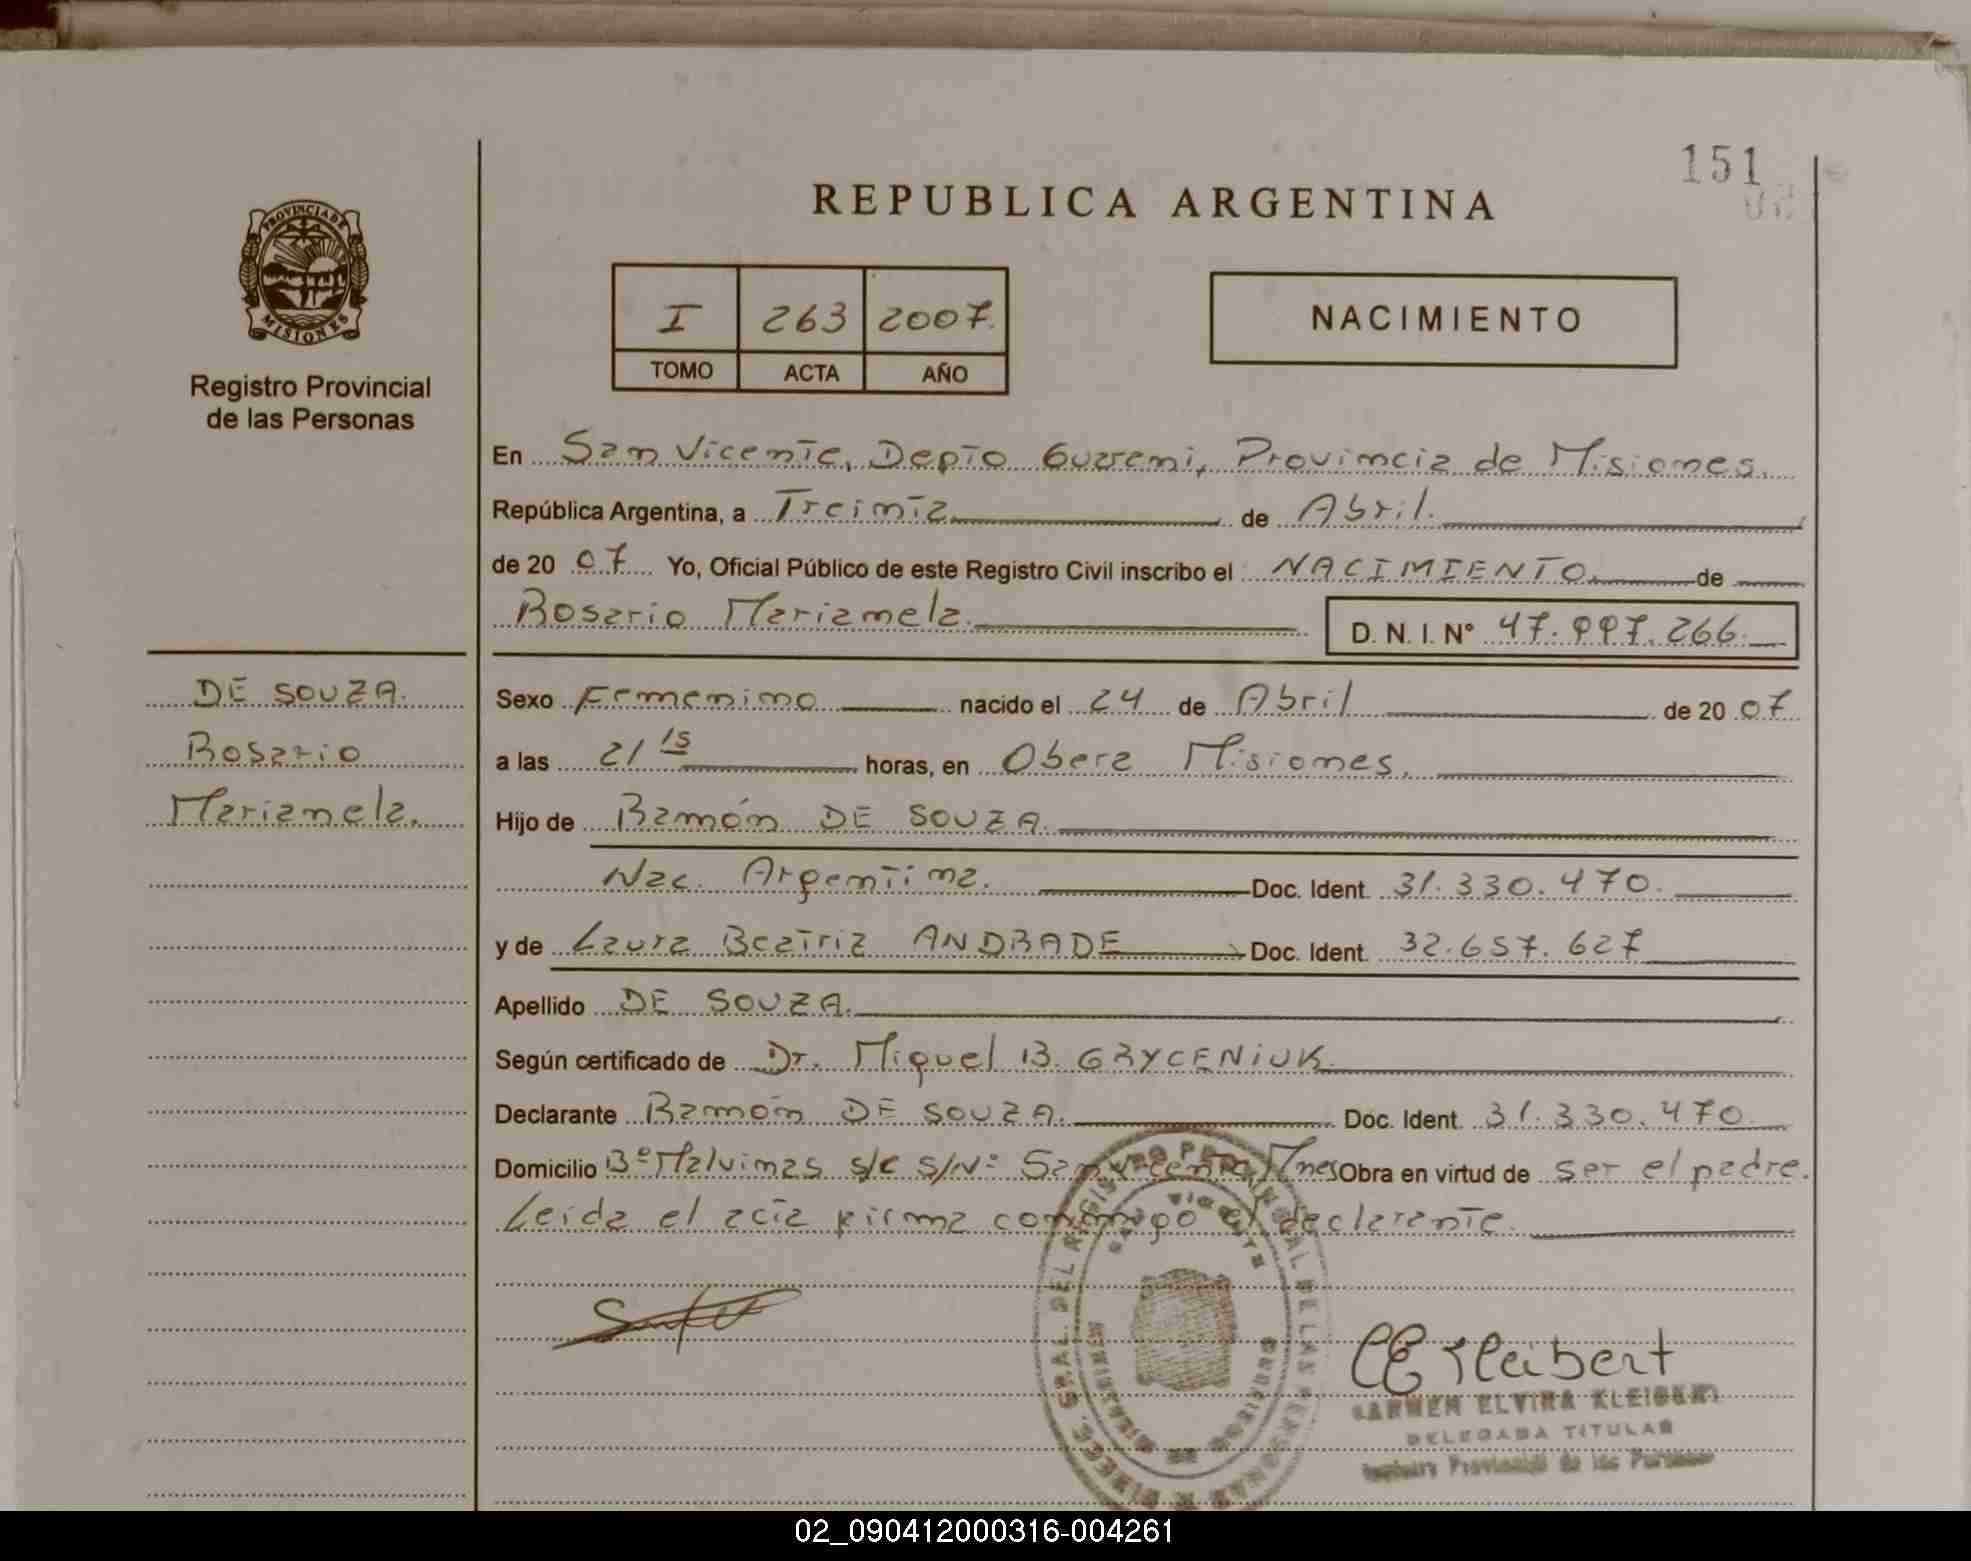 151
REPUBLICA ARGENTINA
PROVINCIA DE
MISIONES
Registro Provincial
de las Personas
I 263 2007.
TOMO ACTA AÑO
NACIMIENTO
En San Vicente, Depto Guarani, Provincia de Misiones.
República Argentina, a Treinta de Abril.
de 20 07 Yo, Oficial Público de este Registro Civil inscribo el NACIMIENTO. de
Rosario Marianela. D. N. I. N° 47.997.266.
DE SOUZA.
Rosario
Marianela.
Sexo Femenino nacido el 24 de Abril de 20 07
a las 21 15 horas, en Obera Misiones.
Hijo de Ramón DE SOUZA.
Nac. Argentina. Doc. Ident. 31.330.470.
y de Laura Beatriz ANDRADE Doc. Ident. 32.657.627
Apellido DE SOUZA.
Según certificado de Dr. Miguel B. GRYCENIUK.
Declarante Ramón DE SOUZA. Doc. Ident. 31.330.470.
Domicilio Bº Malvinas s/c s/Nº San Vicente, Mnes Obra en virtud de ser el padre.
Leida el acta firma conmigo el declarante.
CE Kleibert
CARMEN ELVIRA KLEIBERT
DELEGADA TITULAR
Registro Provincial de las Personas
02_090412000316-004261